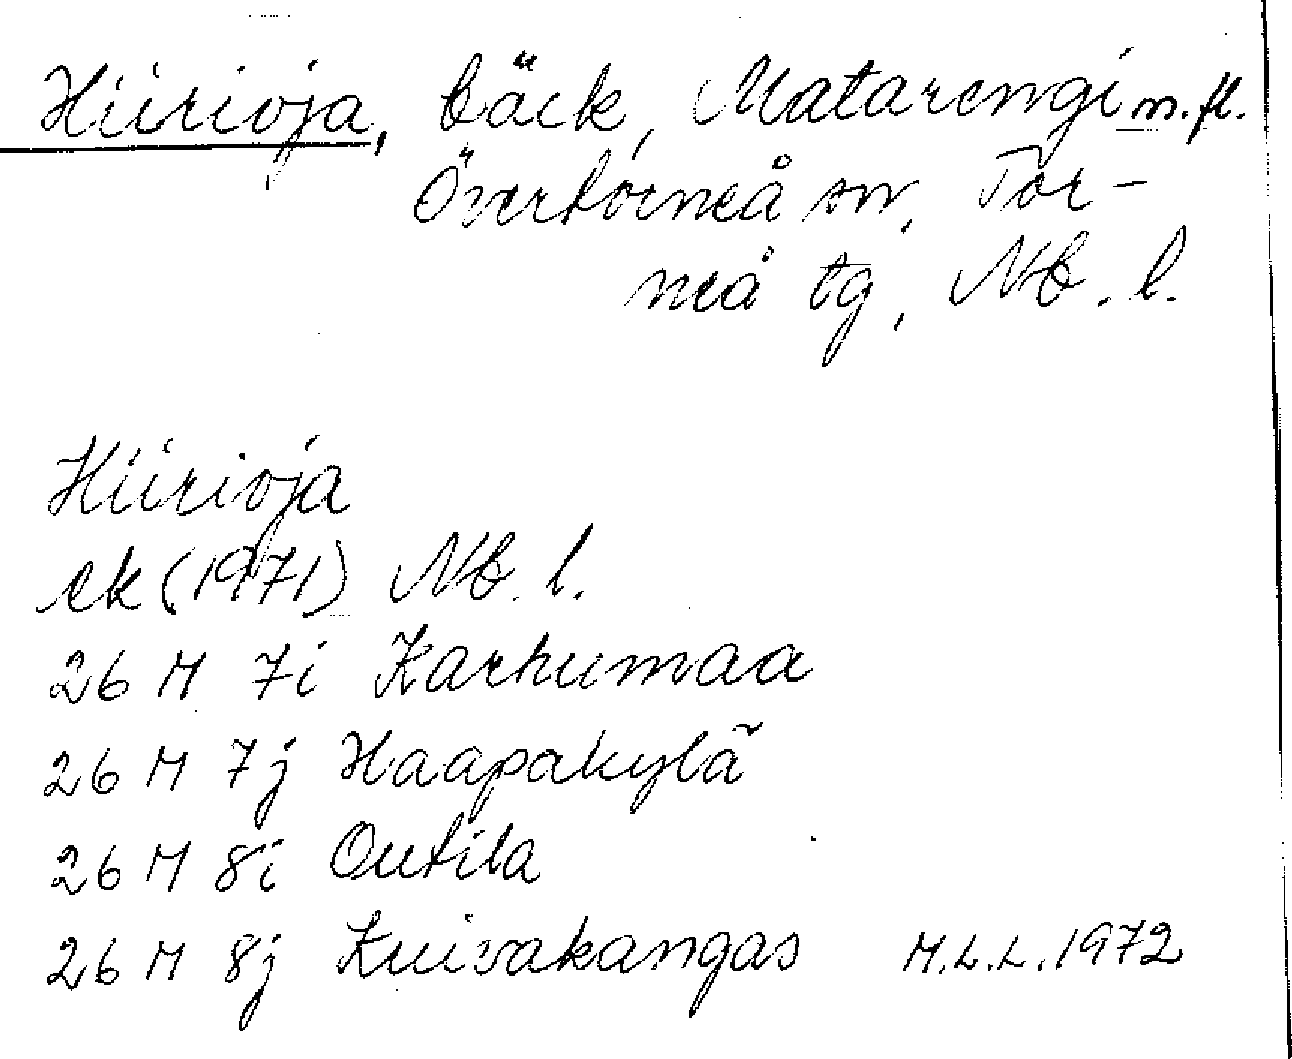 Hiirioja, bäck, Matarengi m.fl.
Övertorneå sn, Tor-
neå tg, Nb. l.
Hiirioja
ek (1971) Nb. l.
26 M 7i Karhumaa
26 M 7j Haapakylä
26 M 8i Outila
26 M 8j Kuivakangas M.L.L. 1972